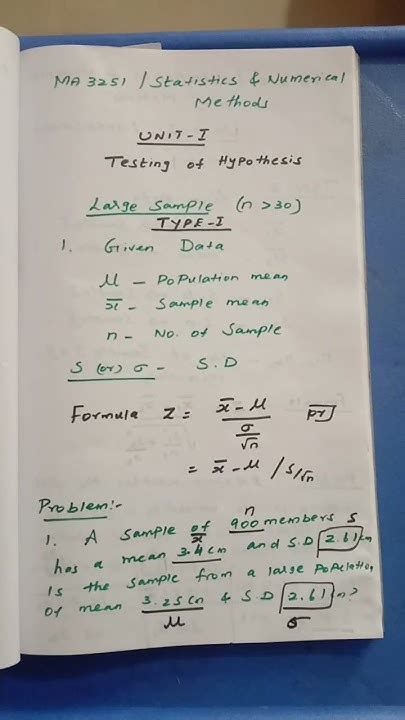 MA 3251 / Statistics & Numerical
Methods
UNIT-I
Testing of Hypothesis
Large Sample (n >30)
TYPE-I
1. Given Data
μ - Population mean
x̄ - Sample mean
n - No. of Sample
S (or) σ - S.D
Formula Z = x̄ - μ / σ/√n
= x̄ - μ / S/√n
Problem:-
n S
1. A Sample of 900 members
x̄
has a mean 3.4 cm and S.D 2.61 cm
Is the Sample from a large Population
Of mean 3.25 cm & S.D 2.61 cm?
μ σ